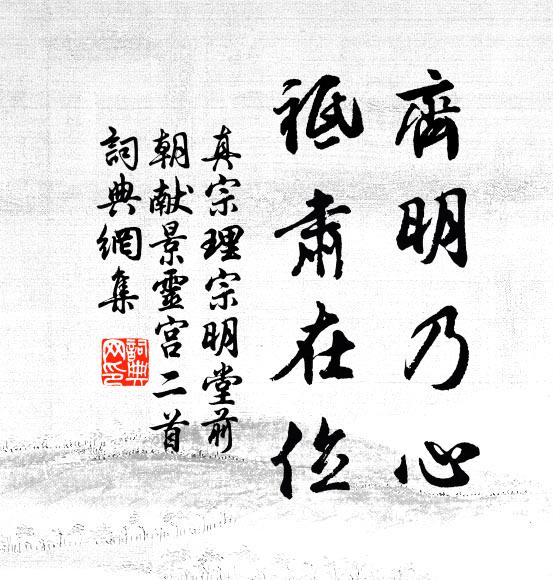 齊明乃心
祗肅在位
真宗理宗明堂前
朝献景靈宫二首
詞典網集
詞典网印